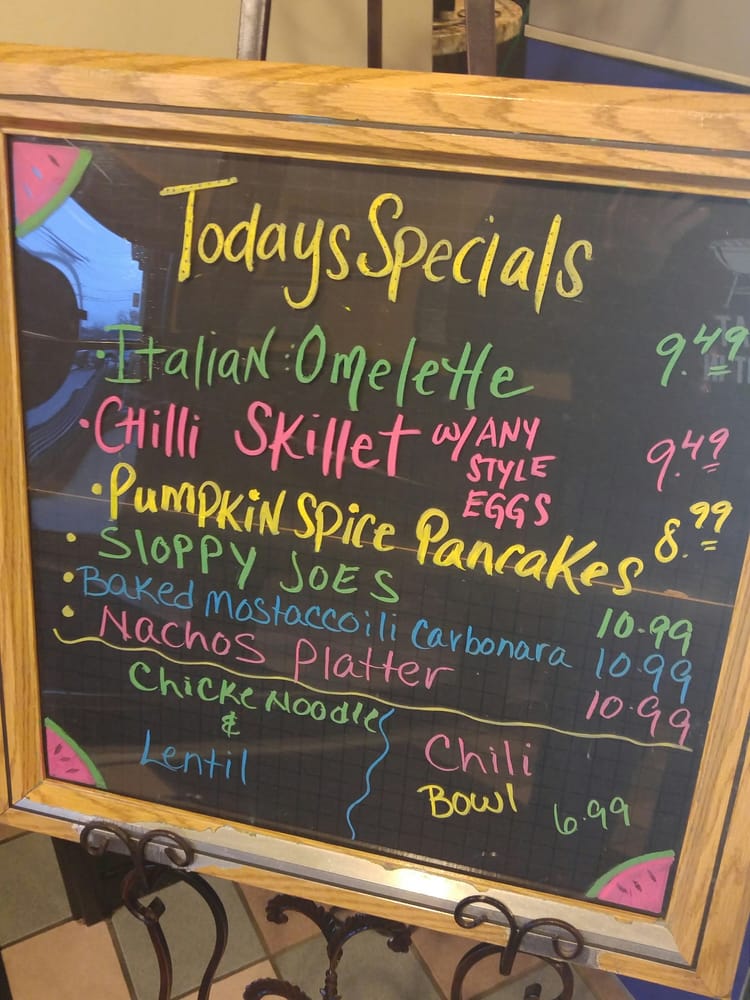 Todays Specials
• Italian Omelette 9.49
• CHilli Skillet w/ANY STYLE EGGS 9.49
• Pumpkin Spice Pancakes 8.99
• Sloppy Joes 10.99
• Baked Mostaccoili Carbonara 10.99
• Nachos Platter 10.99
Chicke Noodle
&
Lentil
Chili
Bowl 6.99